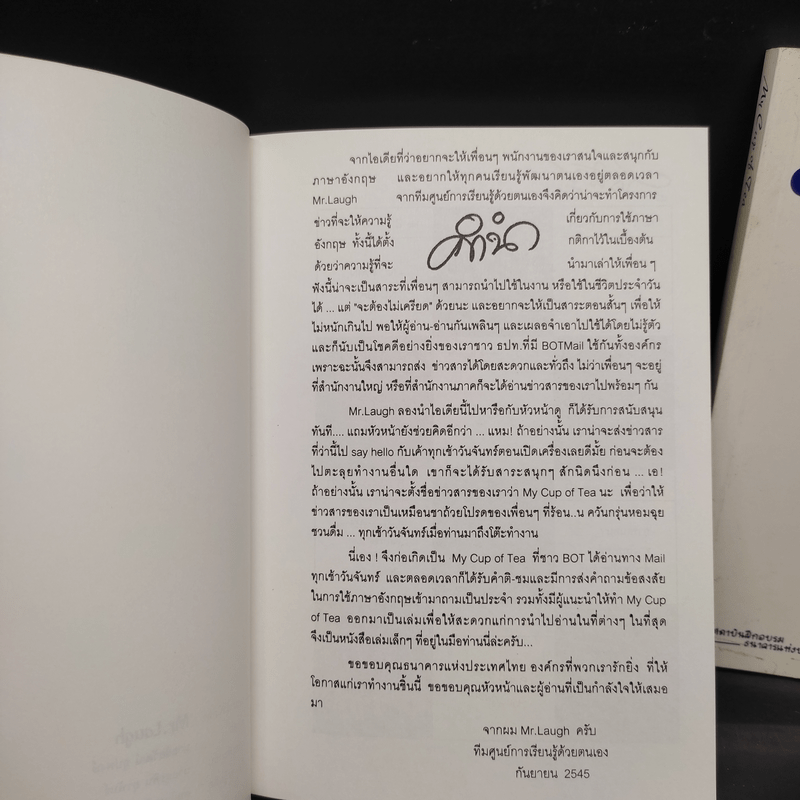 จากไอเดียที่ว่าอยากจะให้เพื่อนๆ พนักงานของเราสนใจและสนุกกับ
ภาษาอังกฤษ และอยากให้ทุกคนเรียนรู้พัฒนาตนเองอยู่ตลอดเวลา
Mr.Laugh จากทีมศูนย์การเรียนรู้ด้วยตนเองจึงคิดว่าน่าจะทำโครงการ
ข่าวที่จะให้ความรู้ เกี่ยวกับการใช้ภาษา
อังกฤษ ทั้งนี้ได้ตั้ง คำนำ กติกาไว้ในเบื้องต้น
ด้วยว่าความรู้ที่จะ นำมาเล่าให้เพื่อน ๆ
ฟังนี้น่าจะเป็นสาระที่เพื่อนๆ สามารถนำไปใช้ในงาน หรือใช้ในชีวิตประจำวัน
ได้ ... แต่ "จะต้องไม่เครียด" ด้วยนะ และอยากจะให้เป็นสาระตอนสั้นๆ เพื่อให้
ไม่หนักเกินไป พอให้ผู้อ่าน-อ่านกันเพลินๆ และเผลอจำเอาไปใช้ได้โดยไม่รู้ตัว
และก็นับเป็นโชคดีอย่างยิ่งของเราชาว ธปท.ที่มี BOTMail ใช้กันทั้งองค์กร
เพราะฉะนั้นจึงสามารถส่ง ข่าวสารได้โดยสะดวกและทั่วถึง ไม่ว่าเพื่อนๆ จะอยู่
ที่สำนักงานใหญ่ หรือที่สำนักงานภาคก็จะได้อ่านข่าวสารของเราไปพร้อมๆ กัน
Mr.Laugh ลองนำไอเดียนี้ไปหารือกับหัวหน้าดู ก็ได้รับการสนับสนุน
ทันที.... แถมหัวหน้ายังช่วยคิดอีกว่า ... แหม! ถ้าอย่างนั้น เราน่าจะส่งข่าวสาร
ที่ว่านี้ไป say hello กับเค้าทุกเช้าวันจันทร์ตอนเปิดเครื่องเลยดีมั้ย ก่อนจะต้อง
ไปตะลุยทำงานอื่นใด เขาก็จะได้รับสาระสนุกๆ สักนิดนึงก่อน ... เอ!
ถ้าอย่างนั้น เราน่าจะตั้งชื่อข่าวสารของเราว่า My Cup of Tea นะ เพื่อว่าให้
ข่าวสารของเราเป็นเหมือนชาถ้วยโปรดของเพื่อนๆ ที่ร้อน..น ควันกรุ่นหอมฉุย
ชวนดื่ม ... ทุกเช้าวันจันทร์เมื่อท่านมาถึงโต๊ะทำงาน
นี่เอง ! จึงก่อเกิดเป็น My Cup of Tea ที่ชาว BOT ได้อ่านทาง Mail
ทุกเช้าวันจันทร์ และตลอดเวลาก็ได้รับคำติ-ชมและมีการส่งคำถามข้อสงสัย
ในการใช้ภาษาอังกฤษเข้ามาถามเป็นประจำ รวมทั้งมีผู้แนะนำให้ทำ My Cup
of Tea ออกมาเป็นเล่มเพื่อให้สะดวกแก่การนำไปอ่านในที่ต่างๆ ในที่สุด
จึงเป็นหนังสือเล่มเล็กๆ ที่อยู่ในมือท่านนี่ล่ะครับ...
ขอขอบคุณธนาคารแห่งประเทศไทย องค์กรที่พวกเรารักยิ่ง ที่ให้
โอกาสแก่เราทำงานชิ้นนี้ ขอขอบคุณหัวหน้าและผู้อ่านที่เป็นกำลังใจให้เสมอ
มา
จากผม Mr.Laugh ครับ
ทีมศูนย์การเรียนรู้ด้วยตนเอง
กันยายน 2545
My Cup of Tea